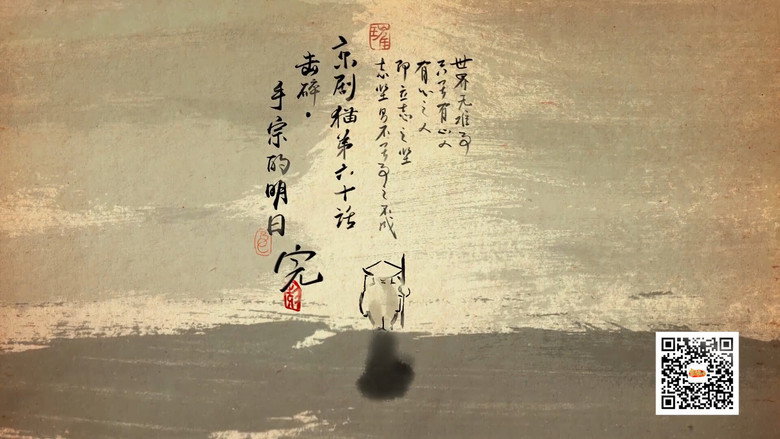 世界无难事
只畏有心人
有心之人
即立志之坚
志坚则不畏事之不成
京剧猫第六十话
击碎·
手宗的明日
完